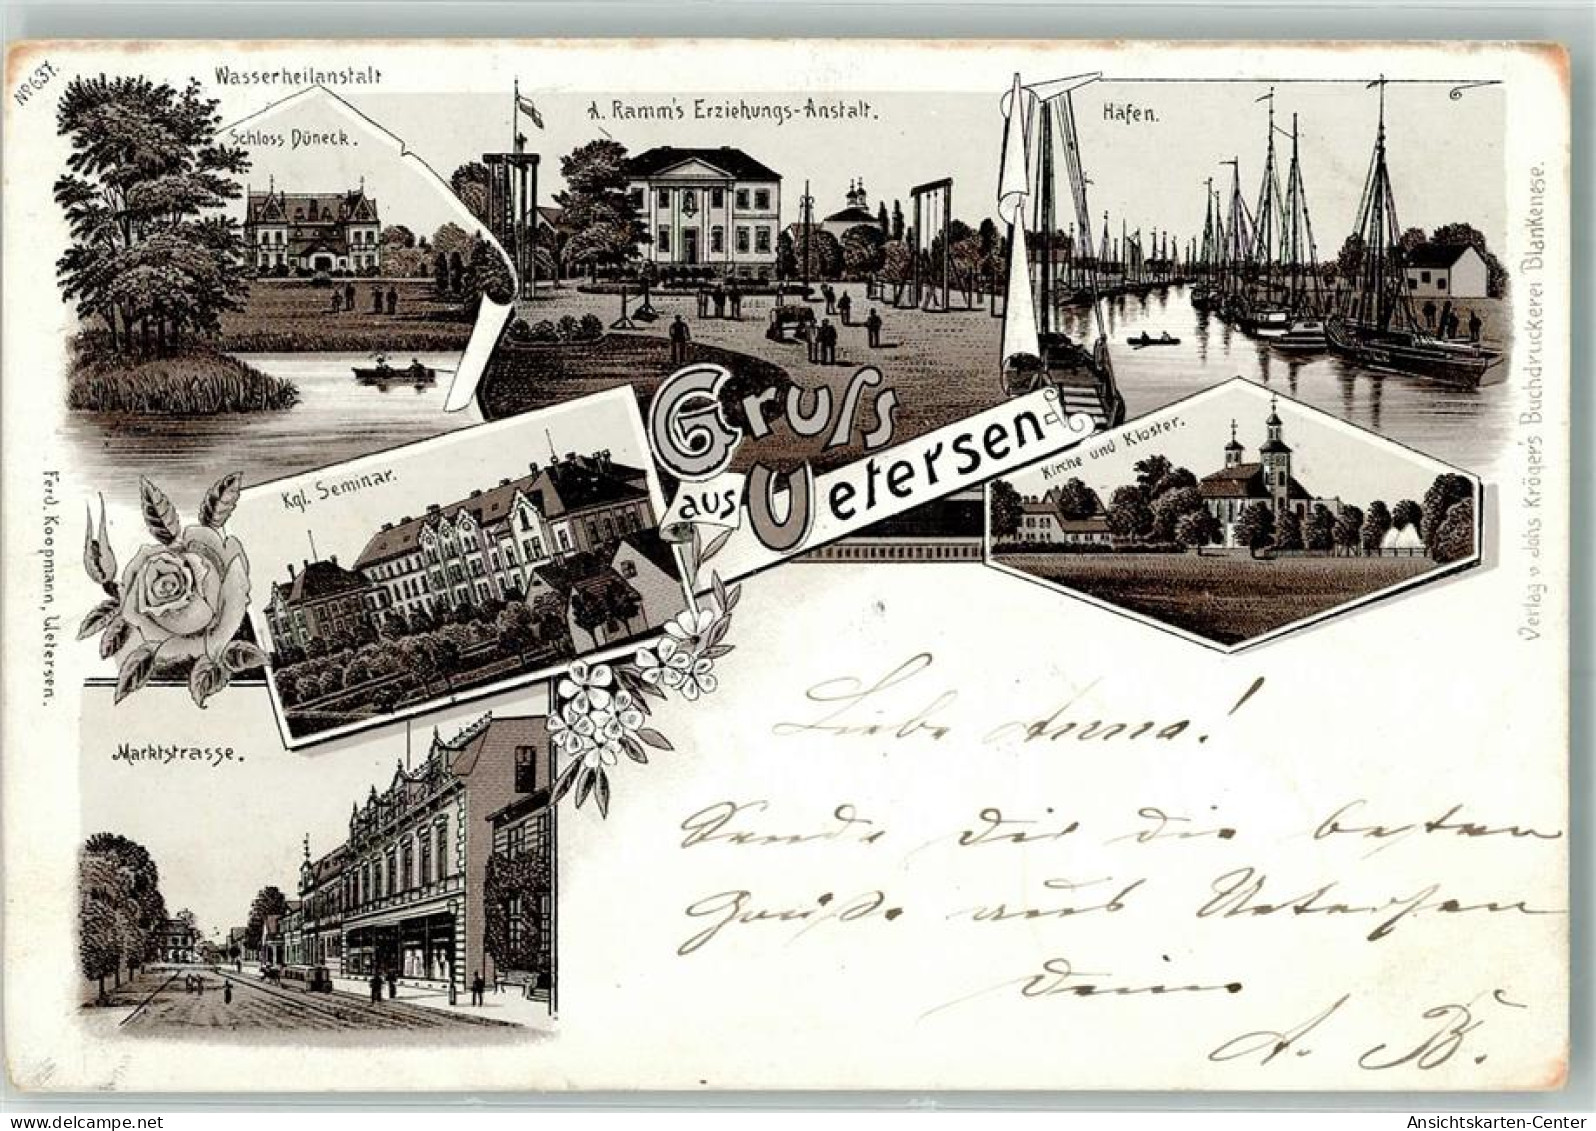 No 637.
Wasserheilanstalt
Schloss Düneck.
A. Ramm's Erziehungs-Anstalt.
Hafen.
Gruss
aus Uetersen
Kgl. Seminar.
Kirche und Kloster.
Marktstrasse.
Ferd. Koopmann, Uetersen.
Verlag v Johs Kröger's Buchdruckerei Blankenese.
Liebe Anna!
Sende Dir die besten
Grüße aus Uetersen
Deine
A. B.
www.delcampe.net
Ansichtskarten-Center